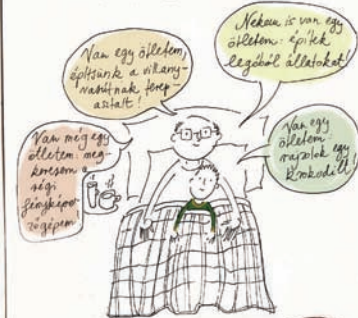 Van egy ötletem,
építsünk a villany-
vasútnak terep-
asztalt!
Nekem is van egy
ötletem: építek
legóból állatokat!
Van még egy
ötletem: meg-
keresem a
régi
fényképe-
zőgépem!
Van egy
ötletem:
rajzolok egy
krokodilt!